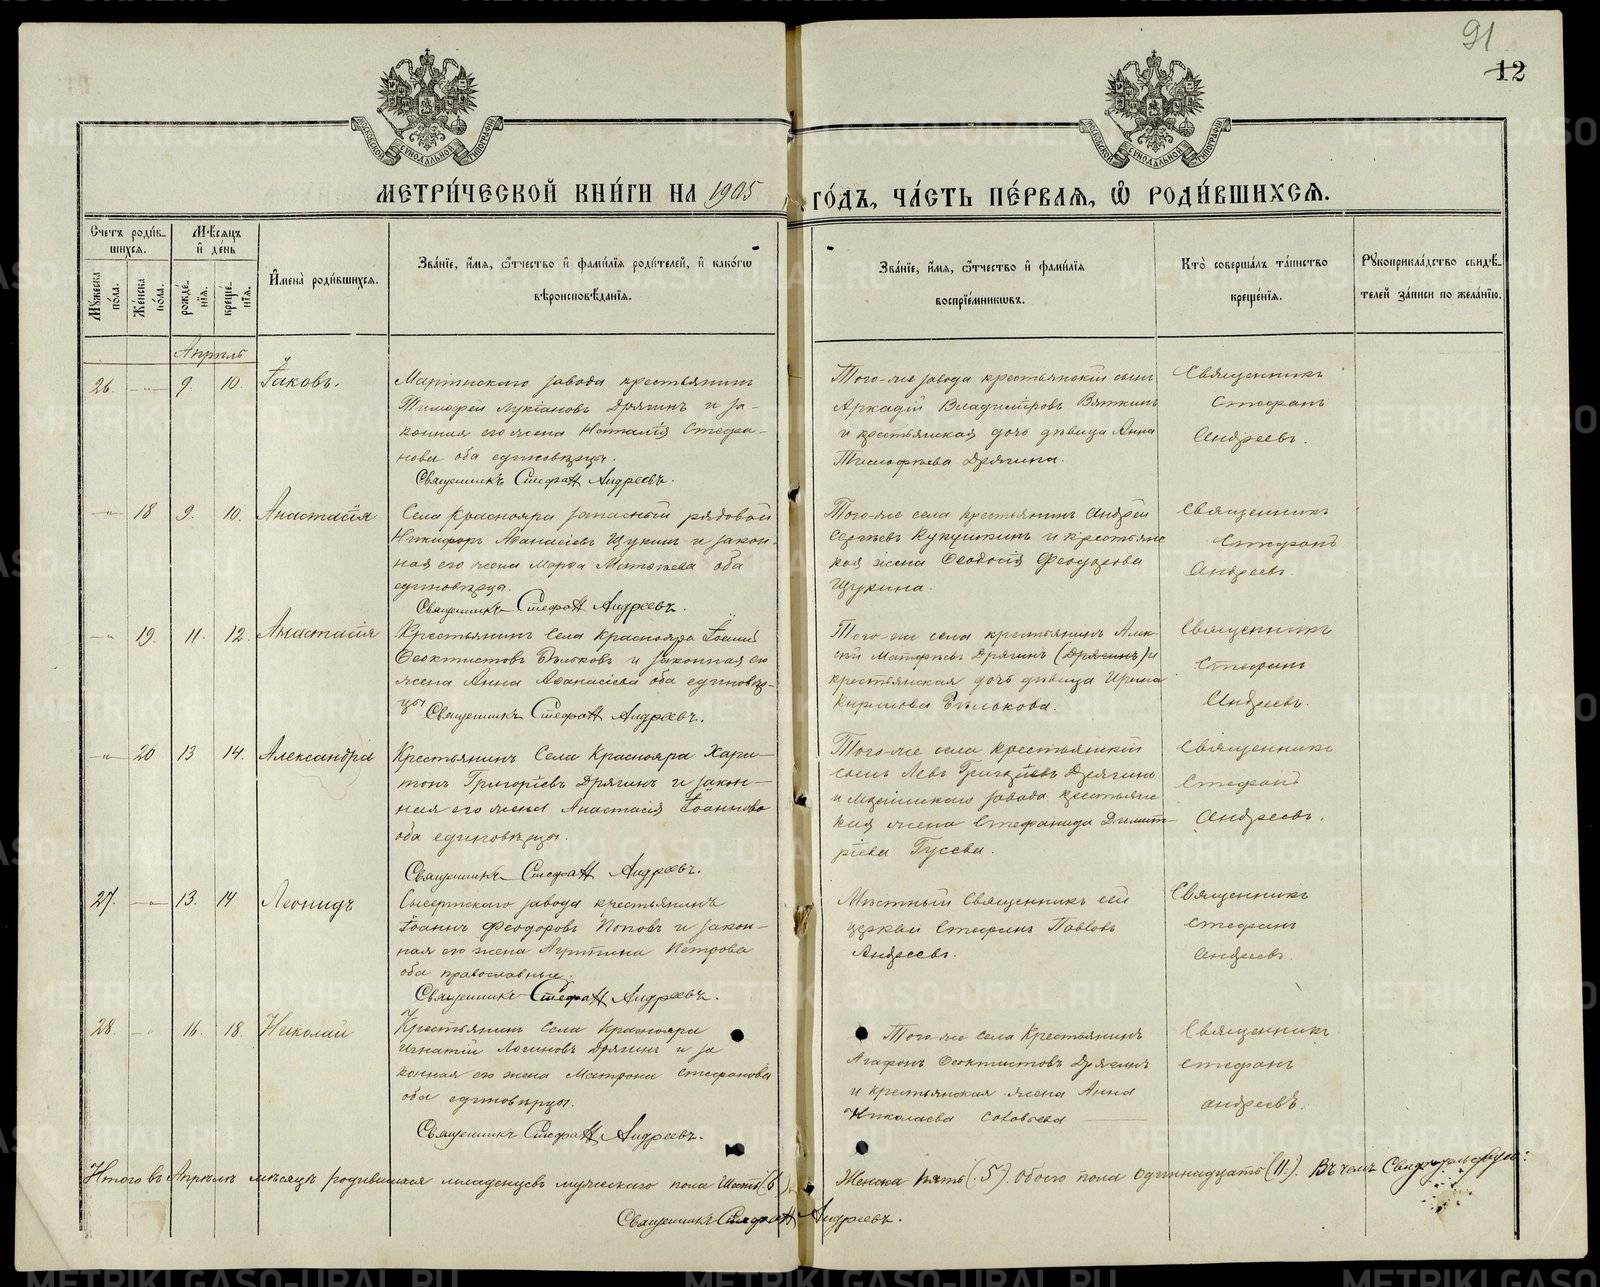 91
12
МЕТРИ́ЧЕСКОЙ КНИ́ГИ НА 1905 ГО́ДЪ, ЧА́СТЬ ПЕ́РВАЯ, Ѿ РОДИ́ВШИХСЯ.
Счетъ роди́в-
шихся.
Мѣсяцъ
и де́нь
Мужеска по́ла.
Же́нска по́ла.
рожде́-
нія.
креще́-
нія.
Имена̀ роди́вшихся.
Зва́ніе, и́мя, о́тчество и фами́лія роди́телей, и како́гѡ
вѣроисповѣ́данія.
Зва́ніе, и́мя, о́тчество и фами́лія
воспріе́мниковъ.
Кто̀ соверша́лъ та́инство
креще́нія.
Рукоприкла́дство свидѣ́-
телей за́писи по жела́нію.
Апрѣль
26 9. 10. Іаковъ.
Мартинскаго завода крестьянинъ
Тимофей Лукіановъ Дрягинъ и за-
конная его жена Наталія Стефа-
нова оба единовѣрцы.
Священникъ Стефанъ Андреевъ.
Того-же завода крестьянскій сынъ
Аркадій Владиміровъ Вяткинъ
и крестьянская дочь дѣвица Анна
Тимофѣева Дрягина.
Священникъ
Стефанъ
Андреевъ.
18 9. 10. Анастасія
Села Краснояра запасный рядовой
Никифоръ Афанасіевъ Щукинъ и закон-
ная его жена Марфа Матфѣева оба
единовѣрцы.
Священникъ Стефанъ Андреевъ.
Того-же села крестьянинъ Андрей
Сергѣевъ Кукушкинъ и крестьянс
кая жена Феодосія Феодорова
Щукина.
Священникъ
Стефанъ
Андреевъ.
19. 11. 12. Анастасія
Крестьянинъ Села Краснояра
Феоктистовъ Бѣлковъ и законная его
жена Анна Афанасіева оба единовѣр-
цы
Священникъ Стефанъ Андреевъ.
Того-же села крестьянинъ Алек-
сѣй Матфѣевъ Дрягинъ (Дрягинъ) и
крестьянская дочь дѣвица Ирина
Кирилова
Священникъ
Стефанъ
Андреевъ.
20 13 14. Александра
Крестьянинъ Села Краснояра Хари-
тонъ Григоріевъ Дрягинъ и закон-
ная его жена Анастасія Іоаннова
оба единовѣрцы.
Священникъ Стефанъ Андреевъ.
Того-же села крестьянскій
сынъ Левъ Григоріевъ Дрягинъ
и завода крестьянс
кая жена Стефанида Димит-
ріева Гусева.
Священникъ
Стефанъ
Андреевъ.
27. 13. 14 Леонидъ
Сысертскаго завода крестьянинъ
Іоаннъ Феодоровъ Поповъ и закон-
ная его жена Агрипина Петрова
оба православные.
Священникъ Стефанъ Андреевъ.
Мѣстный Священникъ сей
церкви Стефанъ Павловъ
Андреевъ.
Священникъ
Стефанъ
Андреевъ.
28 16. 18. Николай
Крестьянинъ Села Краснояра
Игнатій Логиновъ Дрягинъ и за
конная его жена Матрона Стефанова
оба единовѣрцы.
Священникъ Стефанъ Андреевъ.
Того-же села Крестьянинъ
Агафонъ Феоктистовъ Дрягинъ
и крестьянская жена Анна
Николаева Соловьева
Священникъ
Стефанъ
Андреевъ.
Итого въ Апрѣлѣ мѣсяцѣ родившихся младенцевъ мужескаго пола Шесть (6) Женска Пять (5). Обоего пола одиннадцать (11). Въ чемъ Свидѣтельствую:
Священникъ Стефанъ Андреевъ.
METRIKI.GASO-URAL.RU